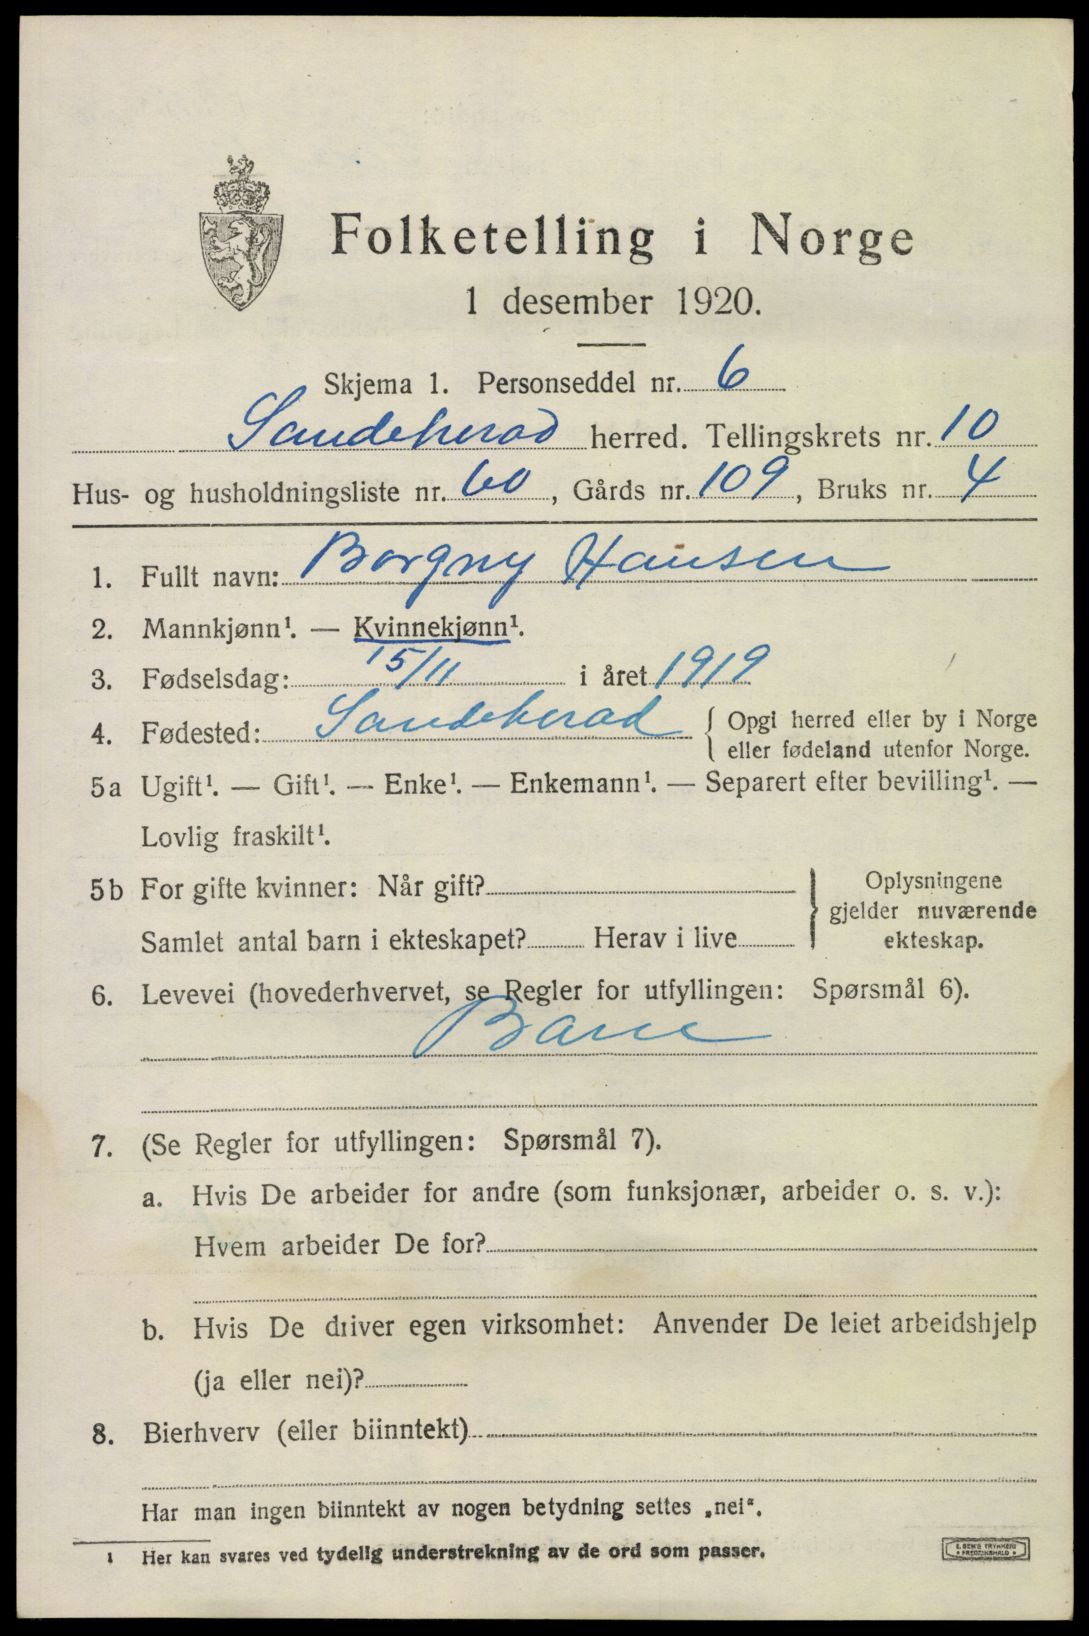 Folketelling i Norge
1 desember 1920.
Skjema 1. Personseddel nr. 6
Sandeherad herred. Tellingskrets nr. 10
Hus- og husholdningsliste nr. 60, Gårds nr. 109, Bruks nr. 4
1. Fullt navn: Borgny Hansen
2. Mannkjønn¹. — Kvinnekjønn¹.
3. Fødselsdag: 15/11 i året 1919
4. Fødested: Sandeherad { Opgi herred eller by i Norge
eller fødeland utenfor Norge.
5a Ugift¹. — Gift¹. — Enke¹. — Enkemann¹. — Separert efter bevilling¹. —
Lovlig fraskilt¹.
5b For gifte kvinner: Når gift? } Oplysningene
gjelder nuværende
Samlet antal barn i ekteskapet? Herav i live ekteskap.
6. Levevei (hovederhvervet, se Regler for utfyllingen: Spørsmål 6).
Barn
7. (Se Regler for utfyllingen: Spørsmål 7).
a. Hvis De arbeider for andre (som funksjonær, arbeider o. s. v.):
Hvem arbeider De for?
b. Hvis De driver egen virksomhet: Anvender De leiet arbeidshjelp
(ja eller nei)?
8. Bierhverv (eller biinntekt)
Har man ingen biinntekt av nogen betydning settes „nei“.
¹ Her kan svares ved tydelig understrekning av de ord som passer.
E. SEM'S TRYKKERI
• FREDRIKSHALD •